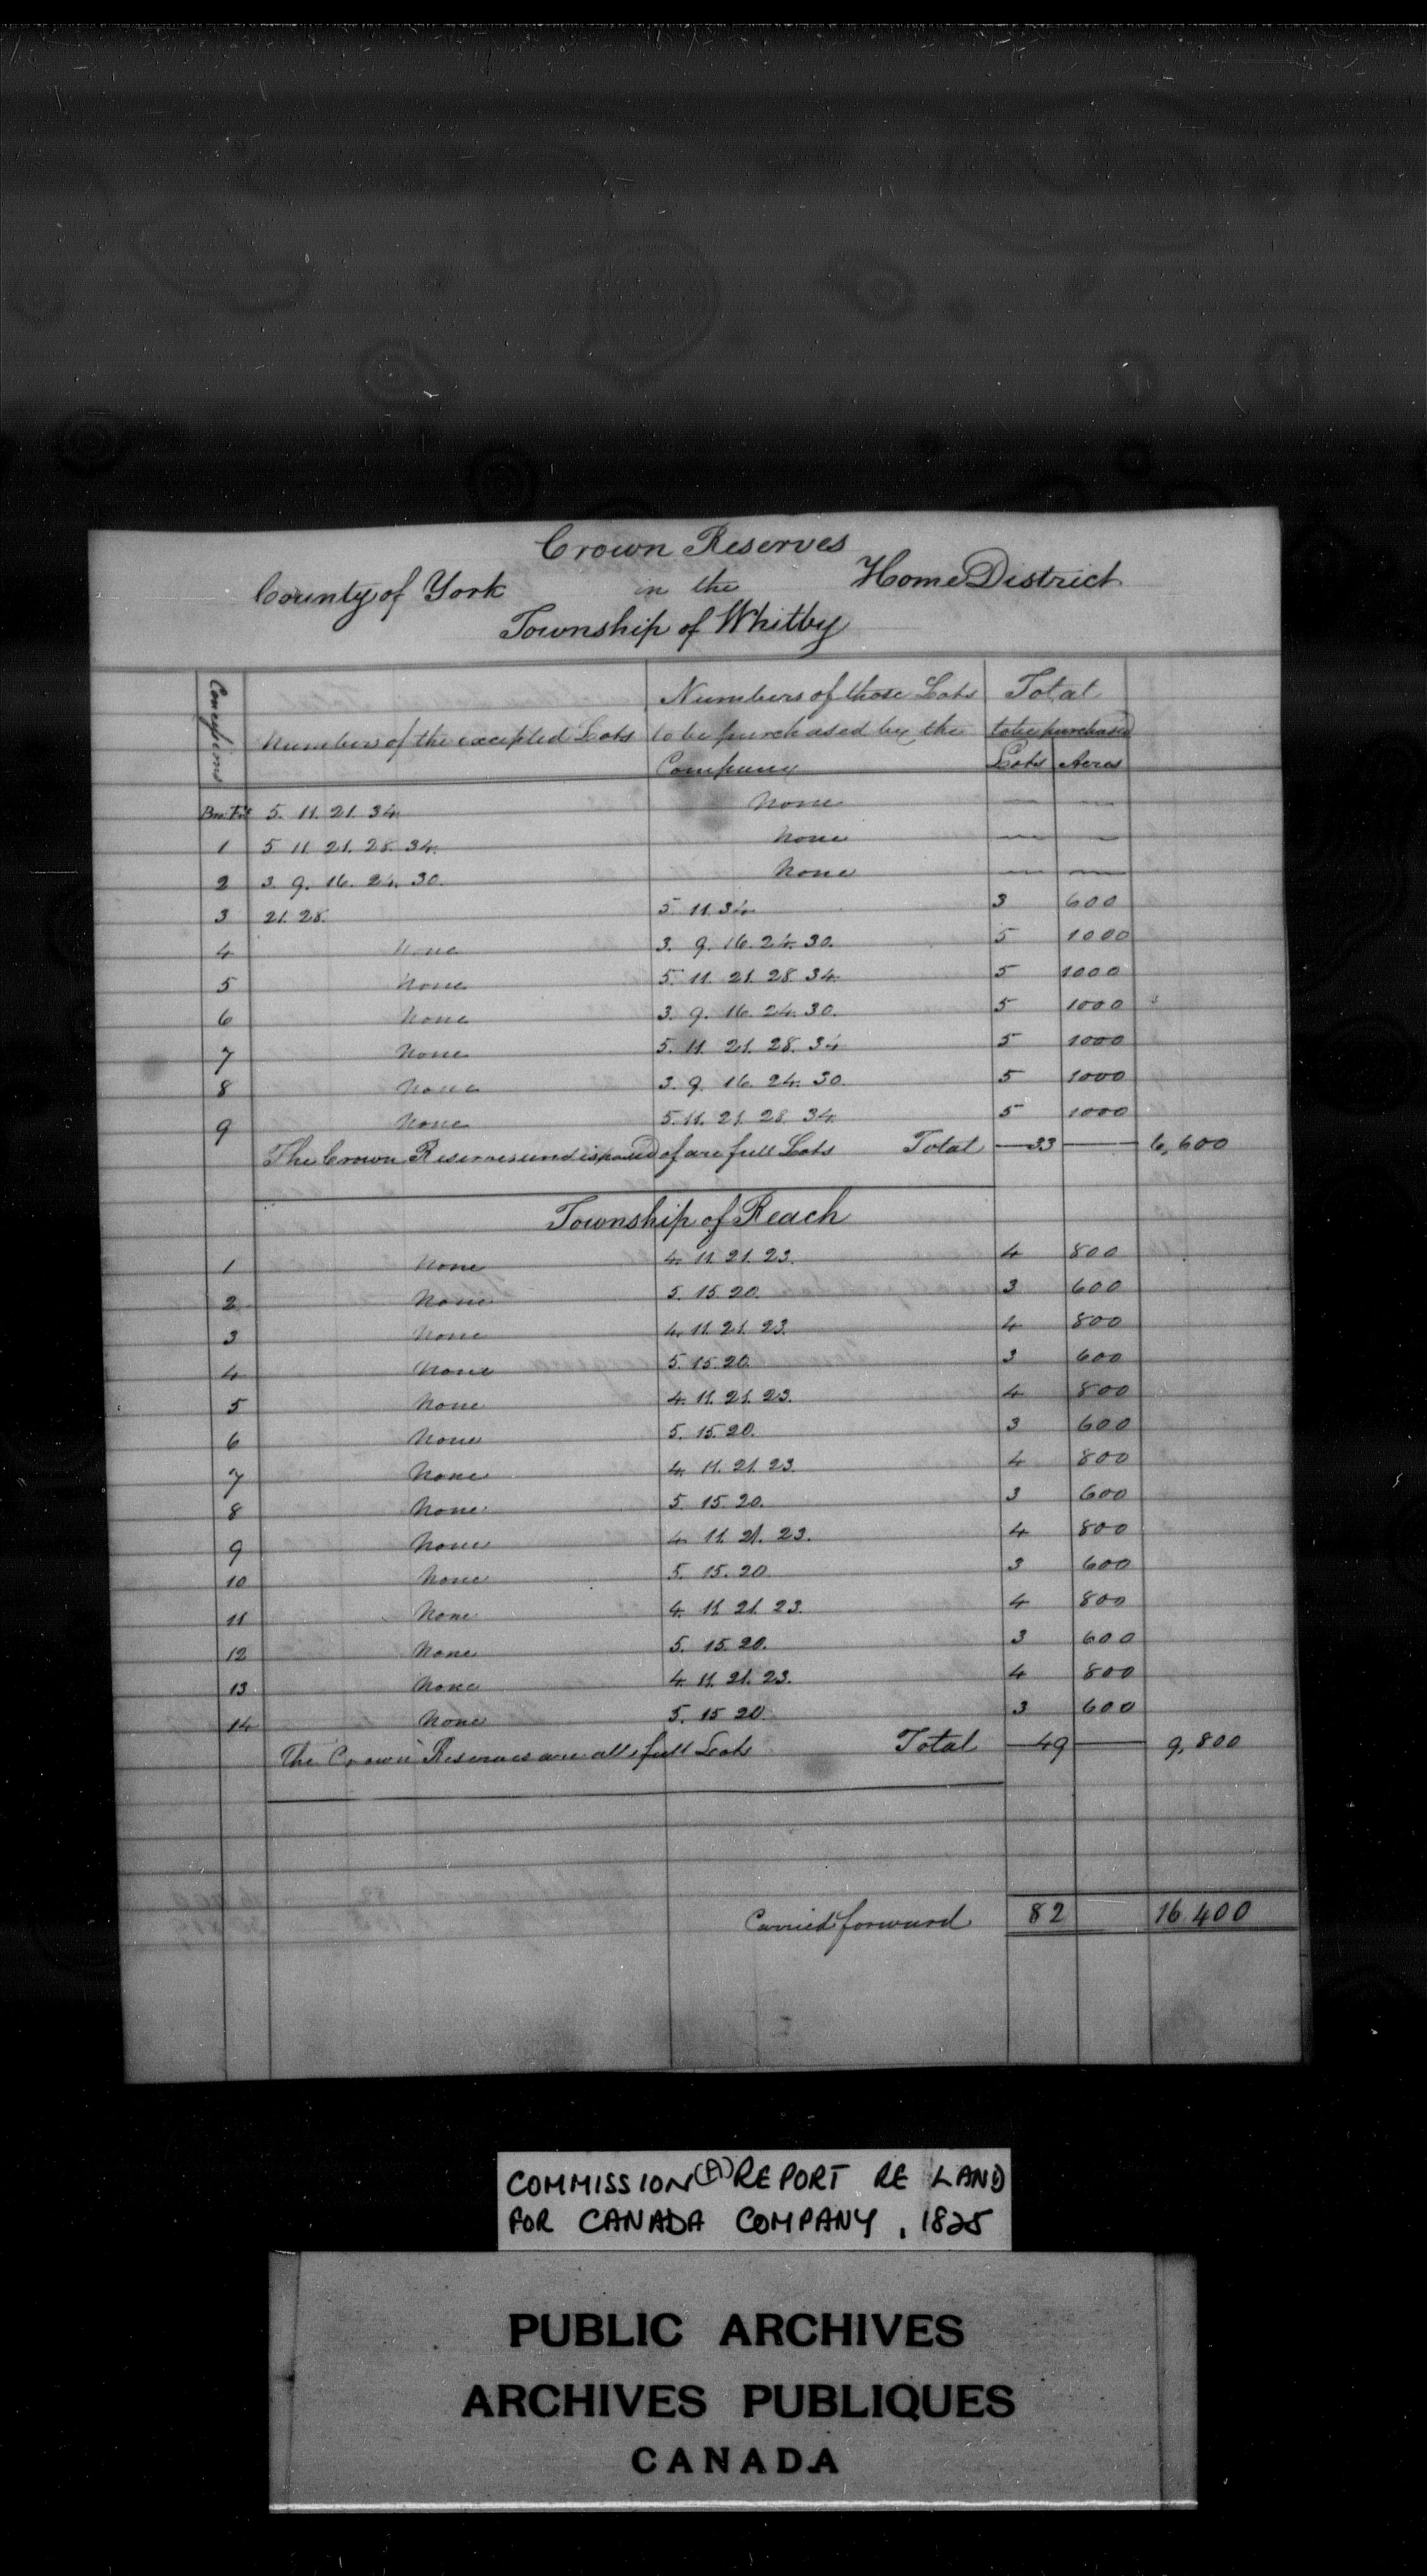 Crown Reserves
County of York in the Home District
Township of Whitby
Concessions
Numbers of the excepted Lots
Numbers of those Lots to be purchased by the Company
Total to be purchased
Lots Acres
Bn. Ft 5. 11. 21. 34. None — —
1 5 11 21. 28. 34. None — —
2 3. 9. 16. 24. 30. None — —
3 21. 28. 5. 11. 34 3 600
4 None 3. 9. 16. 24. 30. 5 1000
5 None 5. 11. 21. 28. 34. 5 1000
6 None 3. 9. 16. 24. 30. 5 1000
7 None 5. 11. 21. 28. 34 5 1000
8 None 3. 9. 16. 24. 30. 5 1000
9 None 5. 11. 21. 28. 34. 5 1000
The Crown Reserves undisposed of are full Lots Total — 33 — 6,600
Township of Reach
1 None 4. 11. 21. 23. 4 800
2 None 5. 15. 20. 3 600
3 None 4. 11. 21. 23. 4 800
4 None 5. 15. 20. 3 600
5 None 4. 11. 21. 23. 4 800
6 None 5. 15. 20. 3 600
7 None 4. 11. 21. 23. 4 800
8 None 5. 15. 20. 3 600
9 None 4. 11. 21. 23. 4 800
10 None 5. 15. 20. 3 600
11 None 4. 11. 21. 23. 4 800
12 None 5. 15. 20. 3 600
13 None 4. 11. 21. 23. 4 800
14 None 5. 15 20. 3 600
The Crown Reserves are all full Lots Total — 49 — 9,800
Carried forward 82 16.400
COMMISSION (A) REPORT RE LAND
FOR CANADA COMPANY, 1825
PUBLIC ARCHIVES
ARCHIVES PUBLIQUES
CANADA